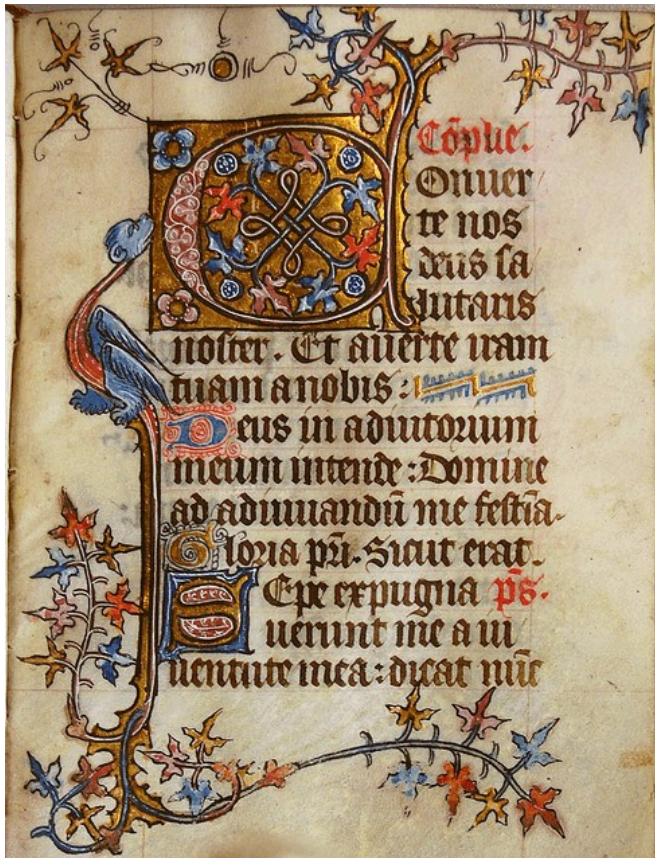 Cōplie.
Conuer
te nos
deus sa
lutaris
noster. Et auerte iram
tuam a nobis:
Deus in adiutorium
meum intende: Domine
ad adiuuandū me festīa.
Gloria pr̄i. Sicut erat.
Sepe expugna ps̄.
uerunt me a iu
uentute mea: dicat nūc